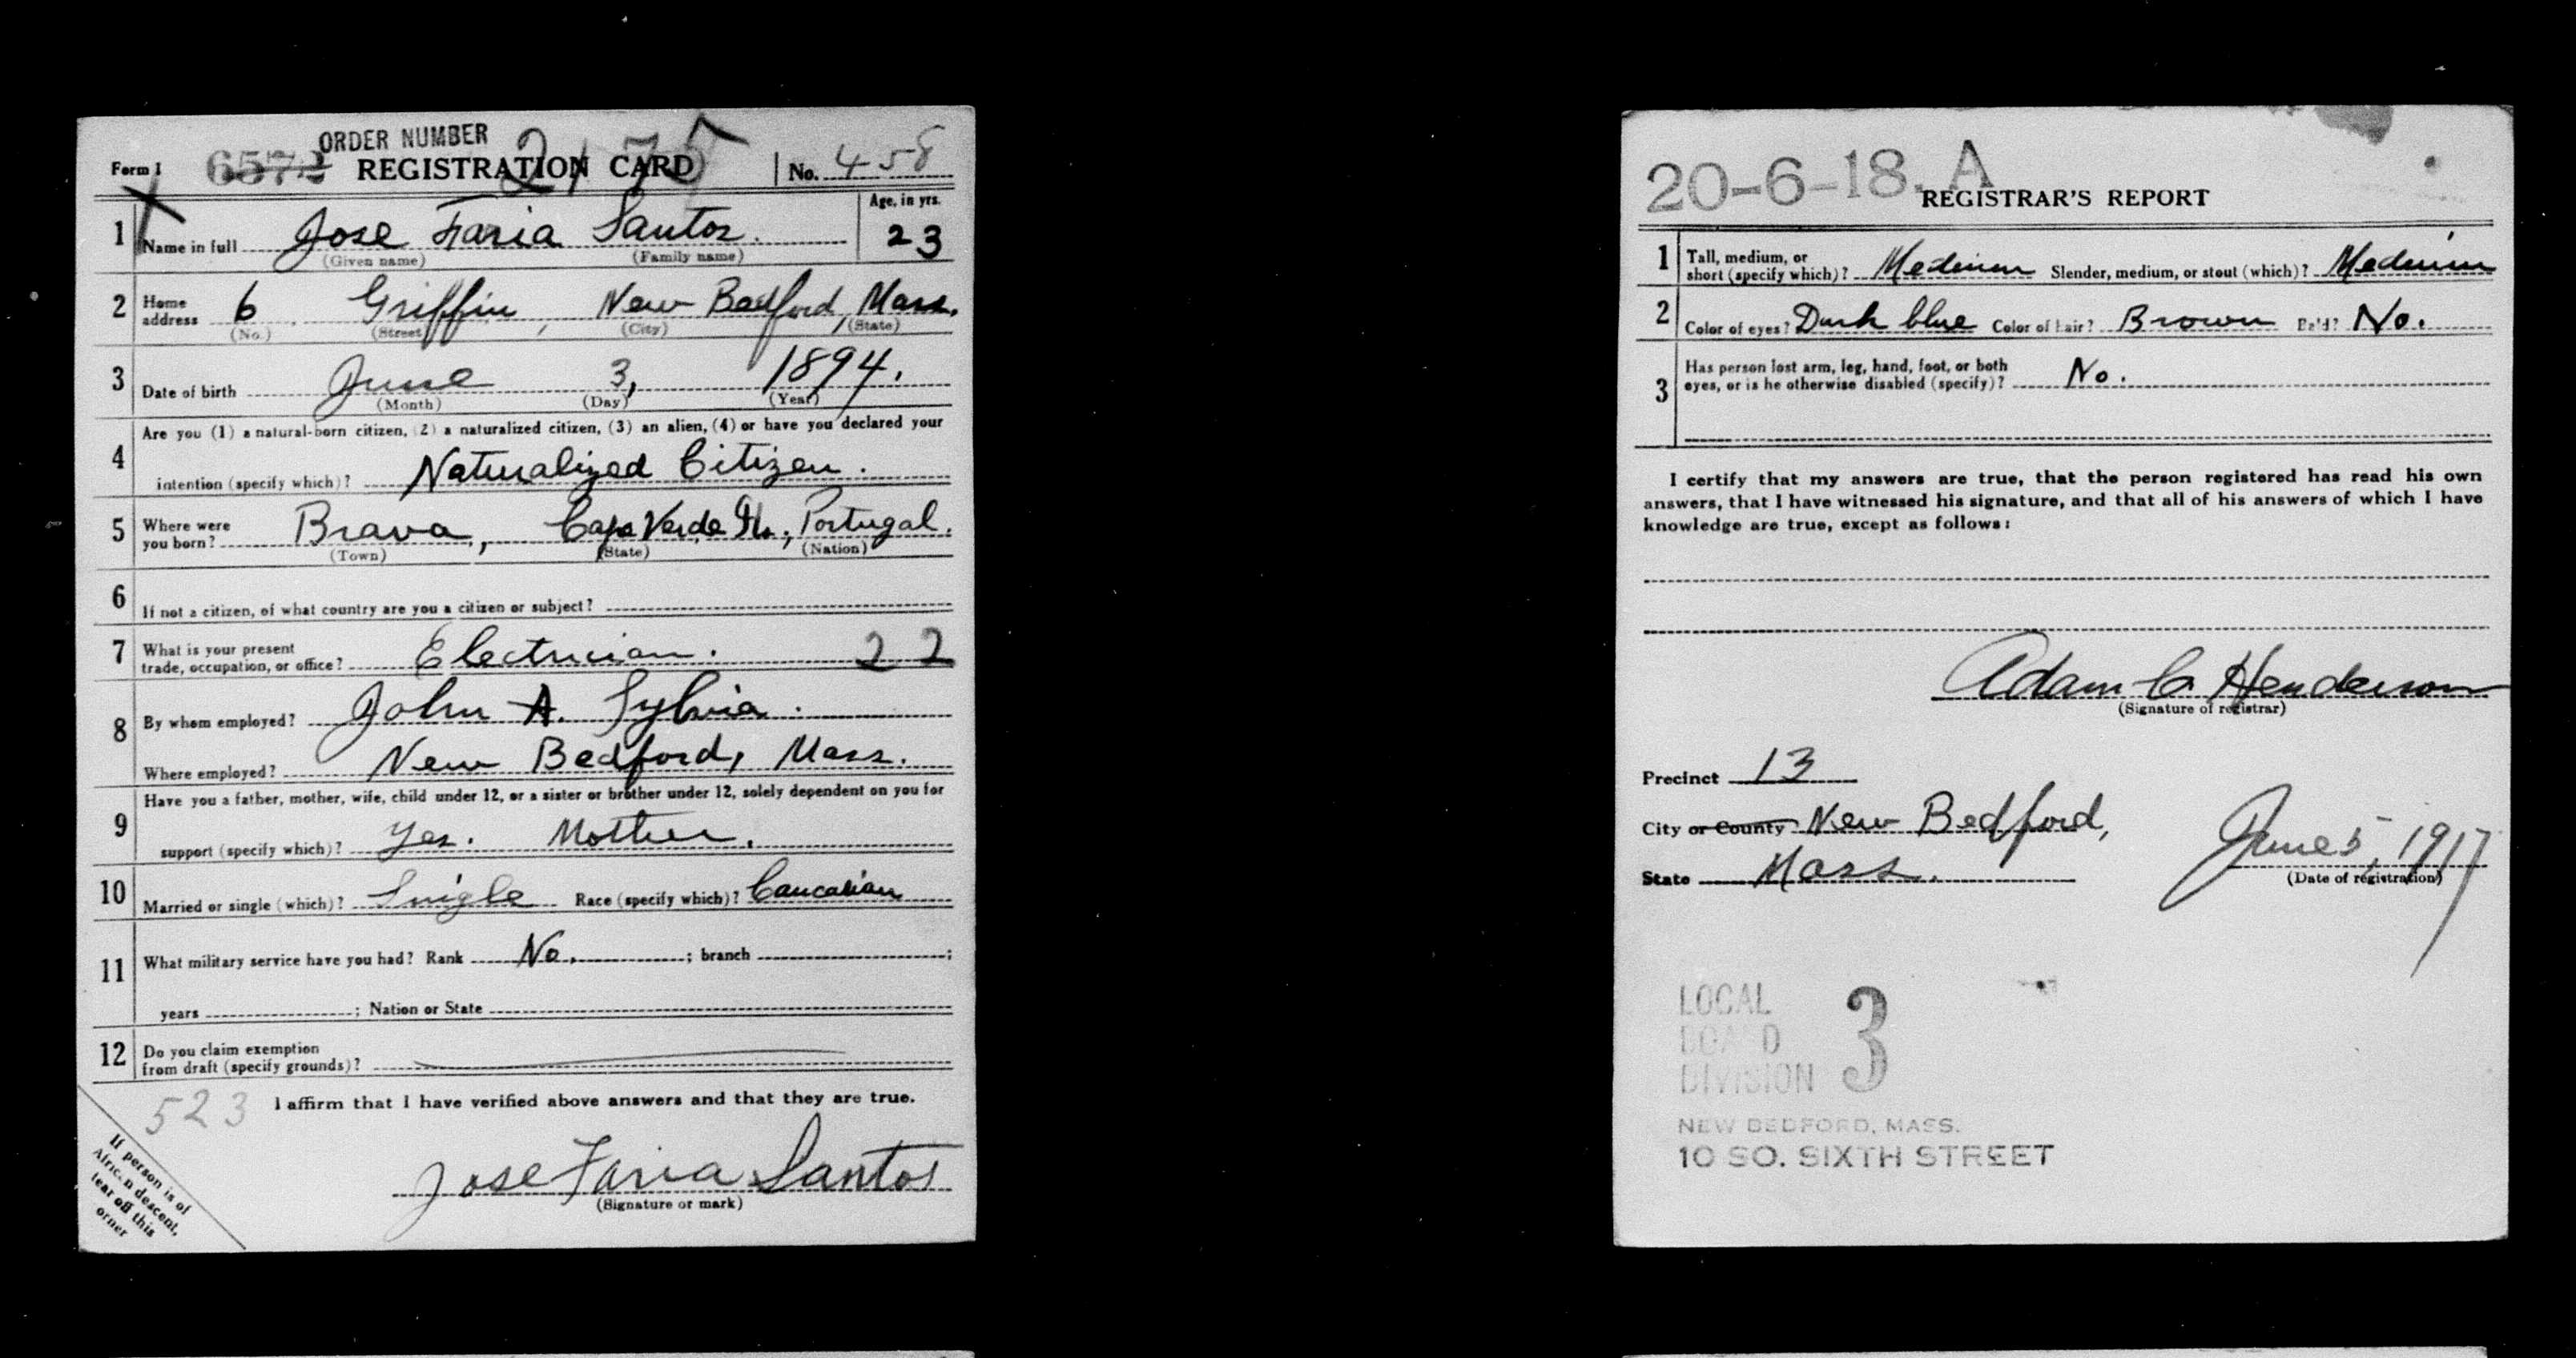 ORDER NUMBER
Form 1 6572 REGISTRATION CARD 2175 No. 458
1 Name in full Jose Faria Santos. Age, in yrs. 23
(Given name) (Family name)
2 Home address 6 Griffin, New Bedford, Mass.
(No.) (Street) (City) (State)
3 Date of birth June 3, 1894.
(Month) (Day) (Year)
4 Are you (1) a natural-born citizen, (2) a naturalized citizen, (3) an alien, (4) or have you declared your
intention (specify which)? Naturalized Citizen.
5 Where were you born? Brava, Cape Verde Is., Portugal.
(Town) (State) (Nation)
6 If not a citizen, of what country are you a citizen or subject?
7 What is your present trade, occupation, or office? Electrician. 22
8 By whom employed? John A. Sylvia.
Where employed? New Bedford, Mass.
9 Have you a father, mother, wife, child under 12, or a sister or brother under 12, solely dependent on you for
support (specify which)? Yes. Mother.
10 Married or single (which)? Single Race (specify which)? Caucasian
11 What military service have you had? Rank No. ; branch ;
years ; Nation or State
12 Do you claim exemption from draft (specify grounds)?
523 I affirm that I have verified above answers and that they are true.
Jose Faria Santos
(Signature or mark)
If person is of
African descent,
tear off this
corner
20-6-18. A
REGISTRAR'S REPORT
1 Tall, medium, or short (specify which)? Medium Slender, medium, or stout (which)? Medium
2 Color of eyes? Dark blue Color of hair? Brown Bald? No.
3 Has person lost arm, leg, hand, foot, or both
eyes, or is he otherwise disabled (specify)? No.
I certify that my answers are true, that the person registered has read his own
answers, that I have witnessed his signature, and that all of his answers of which I have
knowledge are true, except as follows:
Adam C Henderson
(Signature of registrar)
Precinct 13
City or County New Bedford,
State Mass.
June 5, 1917
(Date of registration)
LOCAL
BOARD
DIVISION 3
NEW BEDFORD, MASS.
10 SO. SIXTH STREET